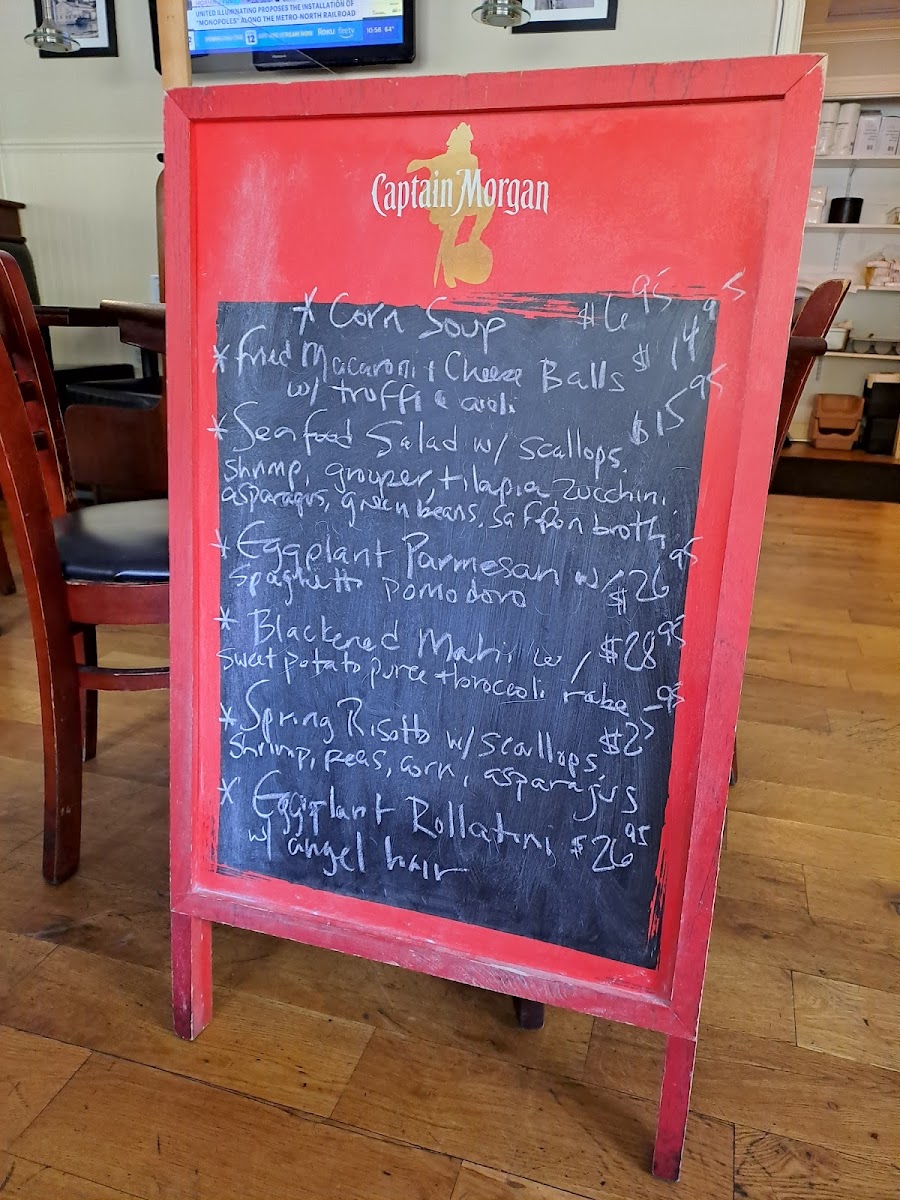 UNITED ILLUMINATING PROPOSES THE INSTALLATION OF
"MONOPOLES" ALONG THE METRO-NORTH RAILROAD
12
Roku firetv
10:56 64°
Captain Morgan
* Corn Soup $6.95
* Fried Macaroni + Cheese Balls $14.95
w/ truffle aioli
* Seafood Salad w/ scallops, $15.95
shrimp, grouper, tilapia zucchini,
asparagus, green beans, saffron broth
* Eggplant Parmesan w/ $26.95
spaghetti pomodoro
* Blackened Mahi w/ $28.95
sweet potato puree + broccoli rabe
* Spring Risotto w/ scallops,
shrimp, peas, corn, asparagus
* Eggplant Rollatini $26.95
w/ angel hair